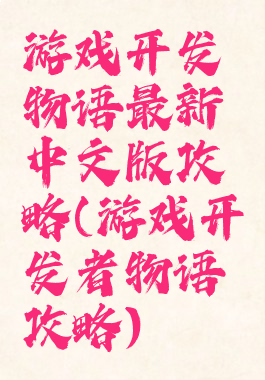 游戏开发
物语最新
中文版攻
略(游戏开
发者物语
攻略)